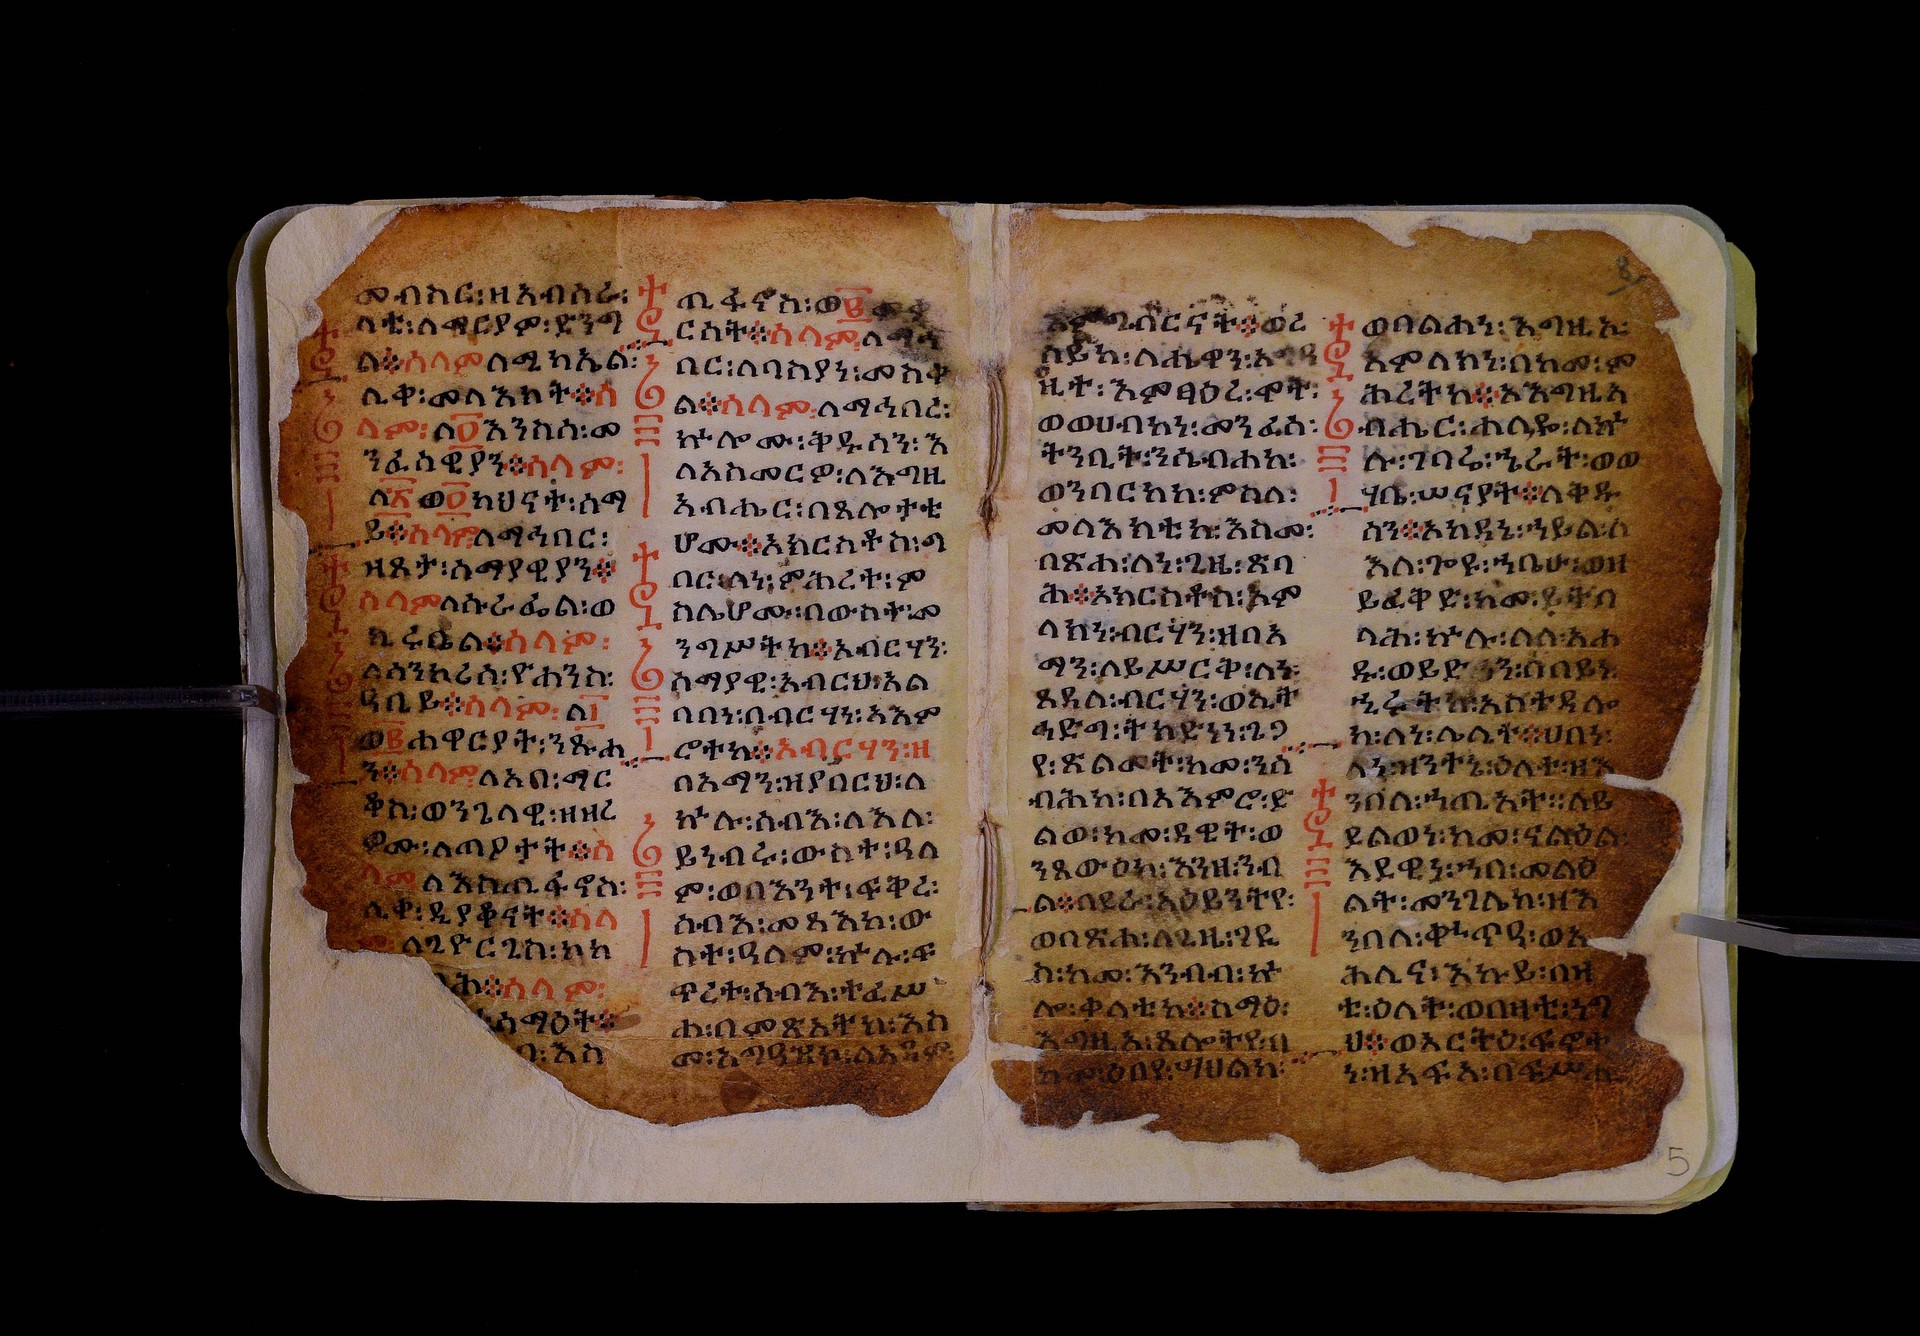 መብከር፡ዘአብሰረ፡
ላቲ፡ለማርያም፡ድንግ
ል፨ሰላም፡ለሚካኤል፡
ሊቀ፡መላእክት፨ሰ
ላም፡ለ፬እንስሳ፡መ
ንፈሳዊያን፨ሰላም፡
ለ፳ወ፬ካህናት፡ሰማ
ይ፨ሰላም፡ለማኅበር፡
ዘጾታ፡ሰማያዊያን፨
ሰላም፡ለሱራፌል፡ወ
ኪሩቤል፨ሰላም፡
ለሰንከሪስ፡ዮሐንስ፡
ዓቢይ፨ሰላም፡ለ፲
ወ፪ሐዋርያት፡ንጹሐ
ን፨ሰላም፡ለአባ፡ማር
ቆስ፡ወንጌላዊ፡ዘዘረ
ሰላም፡ለእስጢፋኖስ፡
ሊቀ፡ዲያቆናት፨ሰላ
ም፡ለጊዮርጊስ፡ኮከ
ሰላም፡
ሰማዕት፨
እስ
ጢፋኖስ፡ወ፪
ርስት፨ሰላም፡
በር፡ለባስያነ፡መስቀ
ል፨ሰላም፡ለማኅበረ፡
ኵሎሙ፡ቅዱሳን፡እ
ለአስመርዎ፡ለእግዚ
አብሔር፡በጸሎታቲ
ሆሙ፨አክርስቶስ፡ግ
በር፡ለነ፡ምሕረት፡ም
ስሌሆሙ፡በውስተ፡መ
ንግሥትከ፨አብርሃነ፡
ሰማያዊ፡አብርህ፡አል
ባበነ፡በብርሃነ፡አእም
ሮትከ፨አብርሃን፡ዘ
በአማን፡ዝያበርህ፡ለ
ኵሉ፡ሰብእ፡ለእለ፡
ይነብሩ፡ውስተ፡ዓለ
ም፡ወበእንተ፡ፍቅረ፡
ሰብእ፡መጻእከ፡ው
ስተ፡ዓለም፡ኵሉ፡ፍ
ጥረት፡ሰብእ፡ተፈሥ
ሐ፡በምጽአትከ፡እስ
መ፡አግዓዝኮ፡ለአዳም፡
ወረ
ሰይከ፡ለሔዋን፡
ዚት፡እምፃዕረ፡ሞት፡
ወወሀብከነ፡መንፈሰ፡
ትንቢት፡ንሴብሐከ፡
ወንባርከከ፡ምስለ፡
መላእክቲከ፡እስመ፡
በጽሐ፡ለነ፡ጊዜ፡ጽባ
ሕ፨አክርስቶስ፡አም
ላክነ፡ብርሃን፡ዘበአ
ማን፡ለይሥርቅ፡ለነ፡
ጸዳለ፡ብርሃን፡ወኢት
ኅድግ፡ትክድነነ፡ጌጋ
የ፡ጽልመት፡ከመ፡ንሰ
ብሕከ፡በአእምሮ፡ይ
ልወ፡ከመ፡ዳዊት፡ወ
ንጸውዕከ፡እንዘ፡ንብ
ል፨በደራ፡አዕይንትየ፡
ወበጽሐ፡ለጊዜ፡ጌዪ
ስ፡ከመ፡አንብብ፡ኵ
ሎ፡ቀለቲከ፨ስማዕ፡
እግዚአ፡ጸሎትየ፡በ
ከመ፡ዕበየ፡ሣህልከ፡
ወባልሐነ፡እግዚኦ፡
አምላክነ፡በከመ፡ም
ሕረትከ፨አእግዚአ
ብሔር፡ሐላዪ፡ለኵ
ሉ፡ገባሬ፡ኄራት፡ወወ
ሃቤ፡ሠናያት፨ለቅዱ
ሳን፨አክዳኔ፡ኀይል፡ለ
እለ፡ጐዩ፡ኀቤሁ፡ወዘ
ይፈቅድ፡ከመ፡ይትባ
ላሕ፡ኵሉ፡ለለ፡አሐ
ዱ፡ወይድኅን፡በበይነ
ኂሩትከ፡አስተዳሎ
ከ፡ለነ፡ሌሊተ፨ሀበነ፡
ለነ፡ዛንተኒ፡ዕለተ፡ዘእ
ንበለ፡ኀጢአት፡፡ለይ
ደልወነ፡ከመ፡ናልዕል፡
እደዊነ፡ኀበ፡መልዕ
ልት፡መንገሌከ፡ዘእ
ንበለ፡ቀኍጥዓ፡ወእ
ሕሊና፡እኩይ፡በዛ
ቲ፡ዕለት፡ወበዛቲ፡ነግ
ህ፨ወአርትዕ፡ፍኖት
ነ፡ዝአፍአ፡በፍሥሐ
5